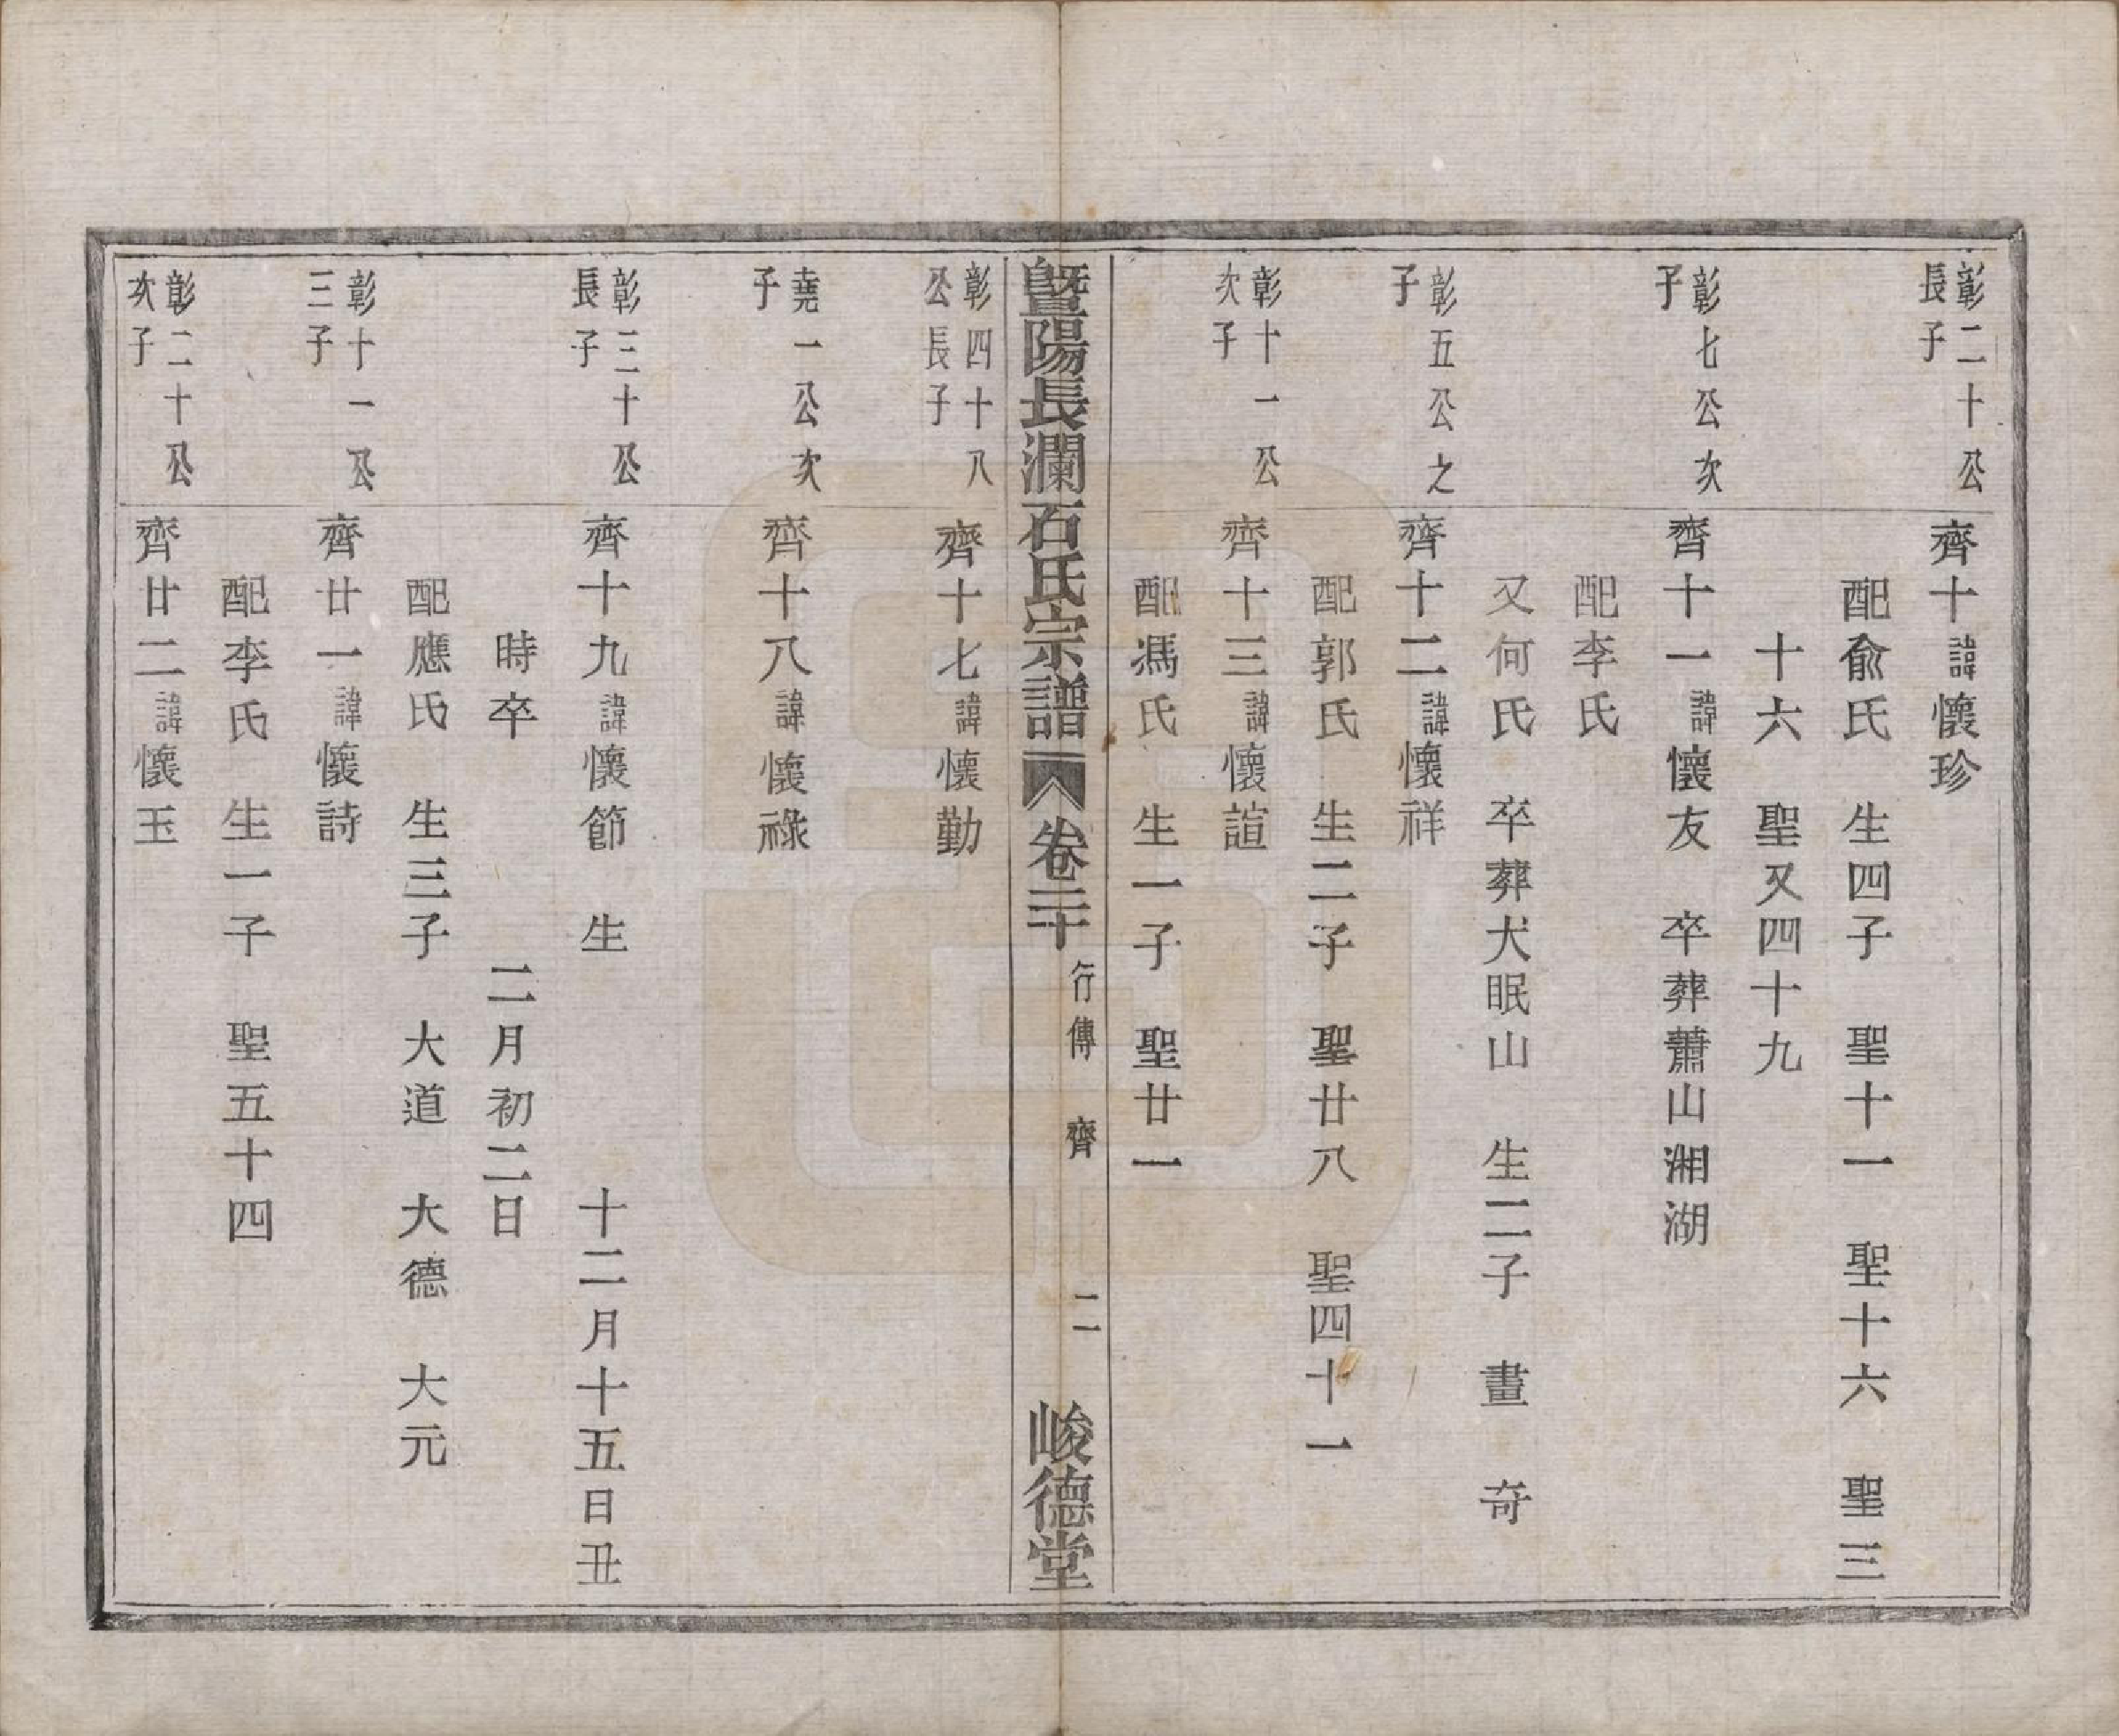 彰二十公
長子
齊十諱懷珍
配俞氏　生四子　聖十一　聖十六　聖三
十六　聖又四十九
彰七公次
子
齊十一諱懷友　卒葬蕭山湘湖
配李氏
又何氏　卒葬犬眠山　生二子　畫　奇
彰五公之
子
齊十二諱懷祥
配郭氏　生二子　聖廿八　聖四十一
彰十一公
次子
齊十三諱懷諠
配馮氏　生一子　聖廿一
暨陽長瀾石氏宗譜　卷二十　行傳　齊　二　峻德堂
彰四十八
公長子
齊十七諱懷勤
堯一公次
子
齊十八諱懷祿
彰三十公
長子
齊十九諱懷節　生　十二月十五日丑
時卒　二月初二日
配應氏　生三子　大道　大德　大元
彰十一公
三子
齊廿一諱懷詩
配李氏　生一子　聖五十四
彰二十公
次子
齊廿二諱懷玉